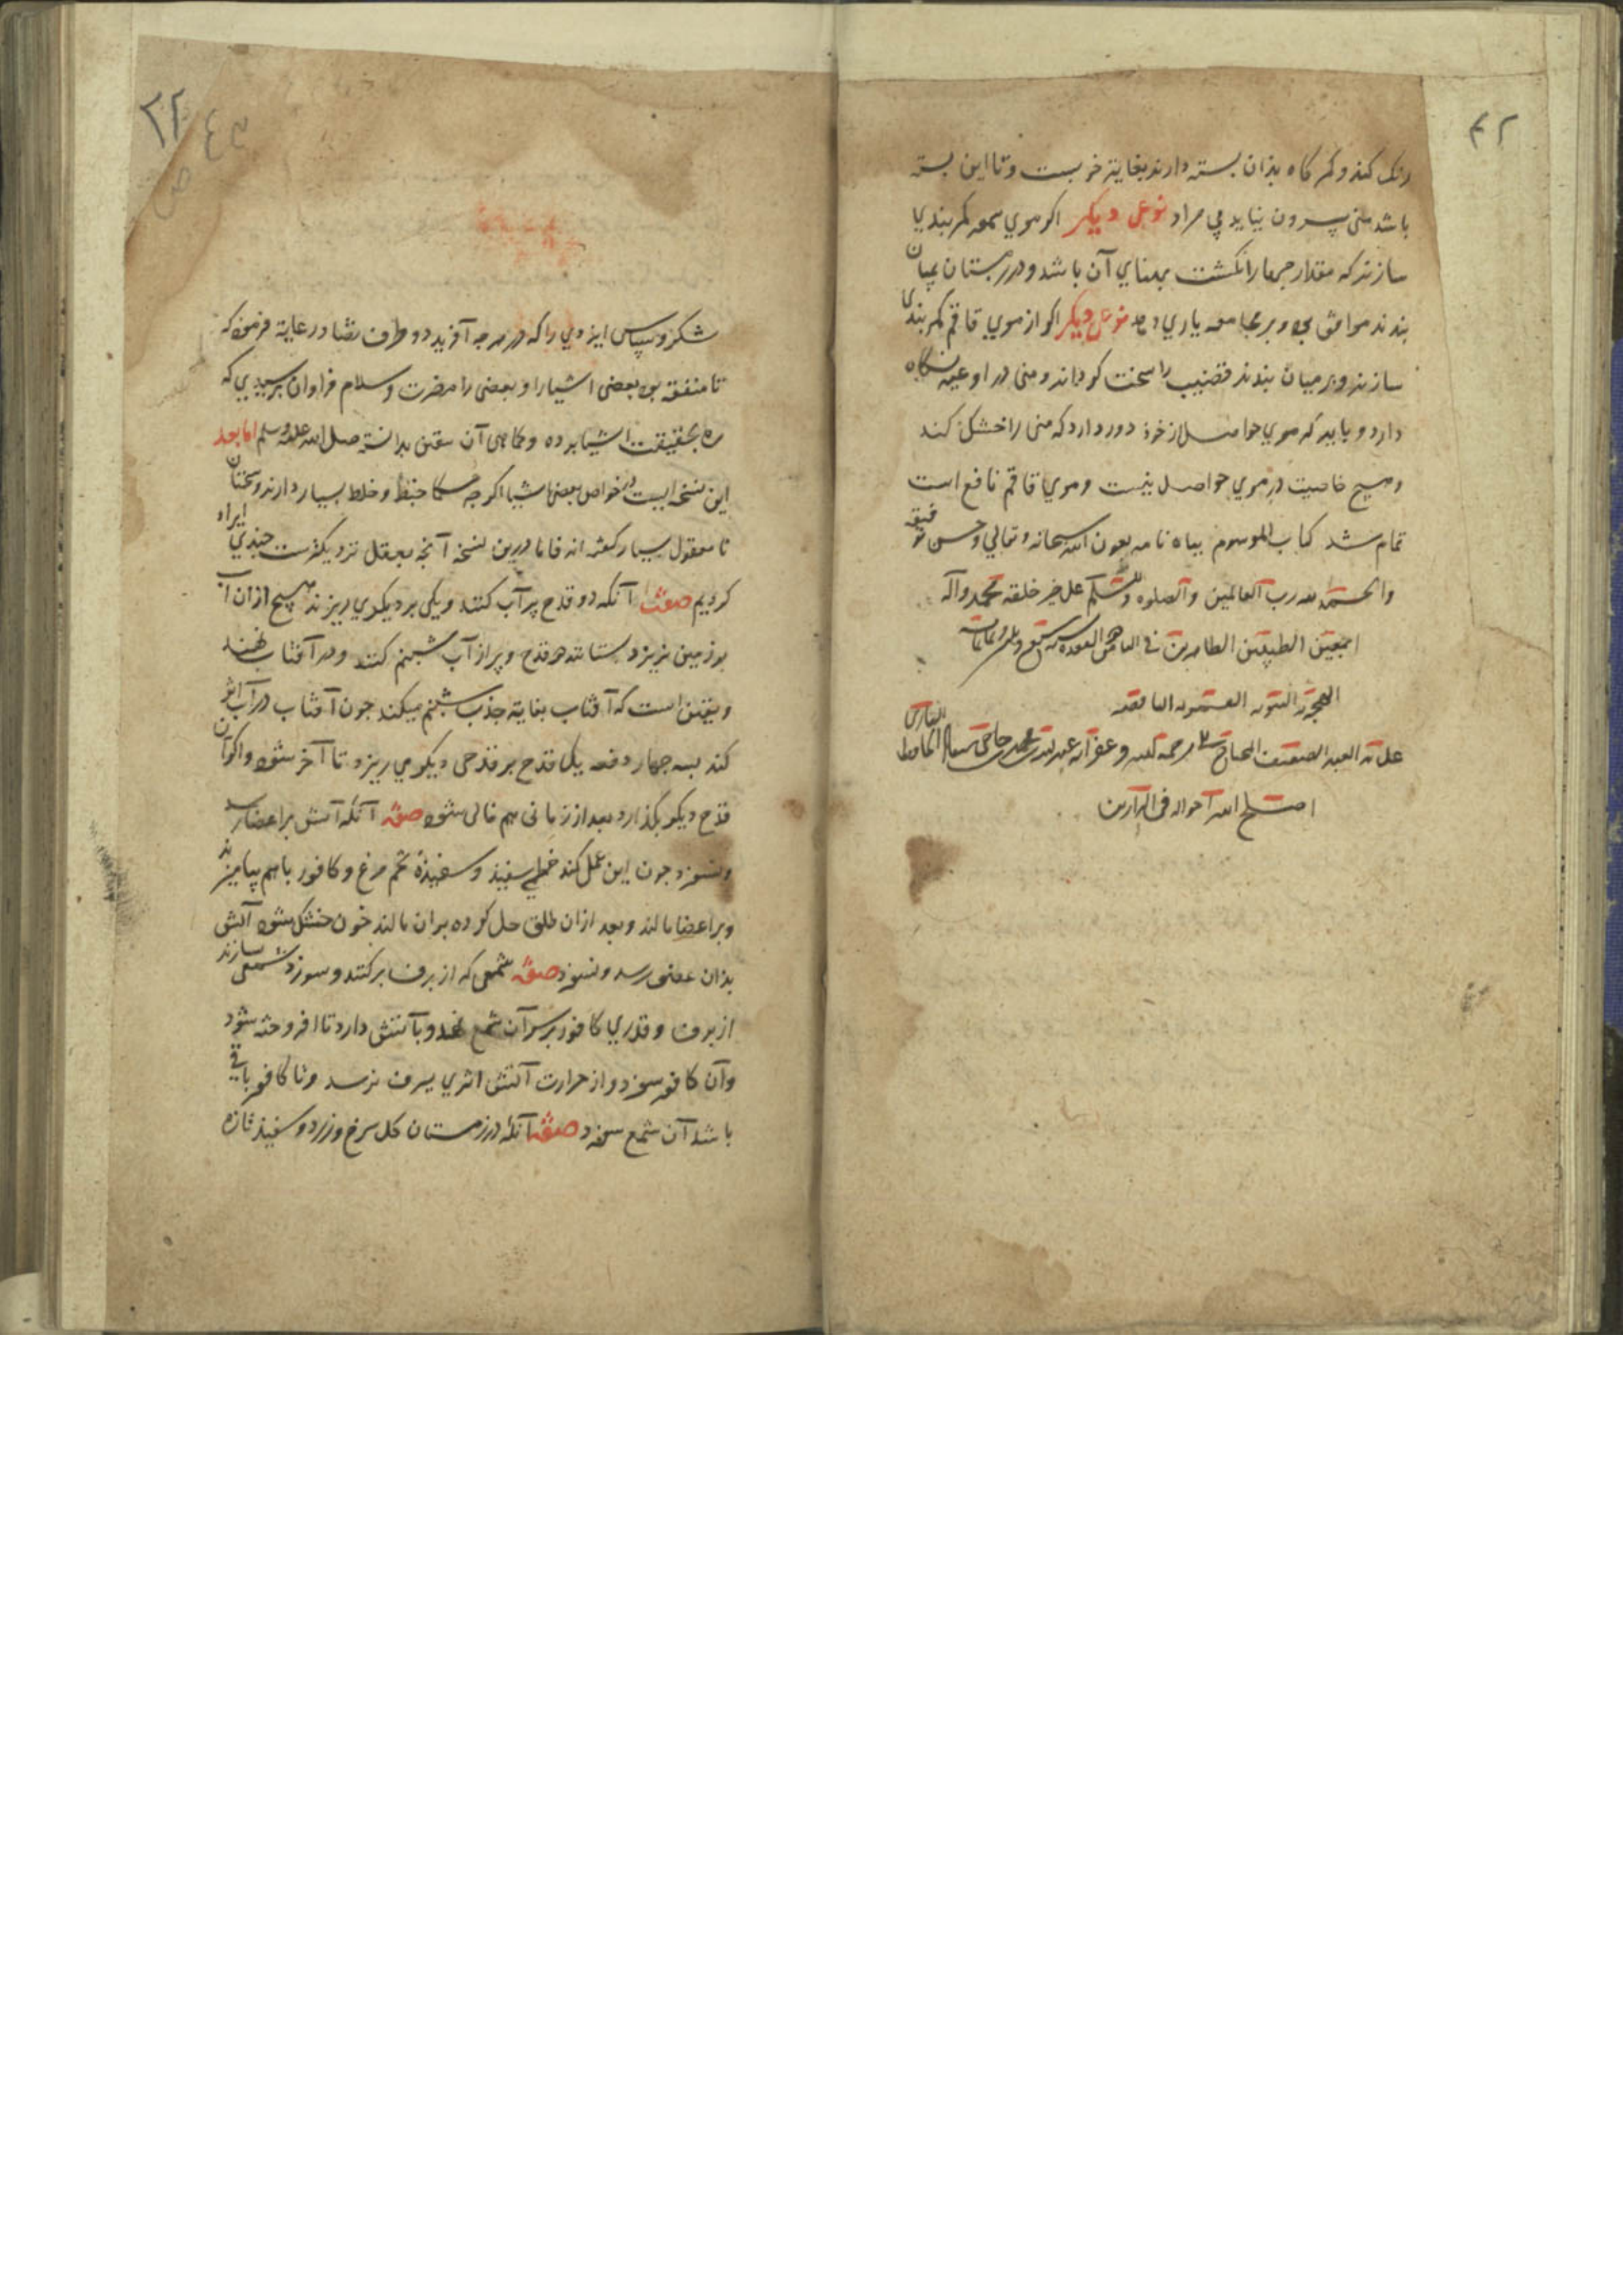 ۴۲
رنک کند و کمرکاه بذان بسته دارند بغایة خوبست و تا این بسته
باشد منی بیرون نیاید بی مراد نوعی دیکر اکر موی سمور کمربندی
سازند که مقدار جهار انکشت بهنای آن باشد و در زمستان بمیان
بندند موافق بود و بر مجامعه یاری دهد نوعی دیکر اکر از موی قاقم کمربندی
سازند و بر میان بندند قضیب را سخت کرداند و منی در اوعیه نکاه
دارد و باید که موی حواصل از خود دور دارد که منی را خشک کند
و هیچ خاصیت در موی حواصل نیست و موی قاقم نافع است
تمام شد کتاب الموسوم بباه نامه بعون الله سبحانه و تعالی و حسن توفیقه
والحمد لله رب العالمین والصلوة والسلم علی خیر خلقه محمد وآله
اجمعین الطیبین الطاهرین فی
الهجریة النبویة
علی ید العبد الضعیف المحتاج الی رحمة الله وغفرانه
اصلح الله احواله فی الدارین
۲۴
شکر و سپاس ایزدی را که در هرجه آفرید دو طرف تضاد رعایة فرموده که
تا منفعة بود بعضی اشیا را و بعضی را مضرت و سلام فراوان بر سیدی که
ره بحقیقت اشیا برده و کماهی آن یقین بدانسته صلی الله علیه وسلم اما بعد
این نسخه ایست در خواص بعضی اشیا اکرجه حکما خبط و خلط بسیار دارند و سخنان
نامعقول بسیار کفته اند فاما درین نسخه آنجه بعقل نزدیکترست جندی ایراد
کردیم صفت آنکه دو قدح پر آب کنند و یکی بر دیکری ریزند هیچ ازان آب
بر زمین نریزد بستانند هر قدح و پر از آب شبنم کنند و در آفتاب نهند
و یقین است که آفتاب بغایة جذب شبنم میکند جون آفتاب در آب اثر
کند بسه جهار دفعه یک قدح بر قدحی دیکر می ریزد تا آخر شود و اکر آن
قدح دیکر بکذارد بعد از زمانی هم خالی شود صفة آنکه آتش بر اعضا رسد
و نسوزد جون این عمل کند خطمی سفید و سفیدهٔ تخم مرغ و کافور باهم بیامیزند
و بر اعضا مالند و بعد ازان طلق حل کرده بران مالند جون خشک شود آتش
بذان عضو رسد و نسوزد صفة شمعی که از برف بر کنند و سوزد شمعی سازند
از برف و قدری کافور بر سر آن شمع نهد و بآتش دارد تا افروخته شود
و آن کافور سوزد و از حرارت آتش اثری ببرف نرسد و تا کافور باقی
باشد آن شمع سوزد صفة آنکه در زمستان کل سرخ و زرد و سفید تازه